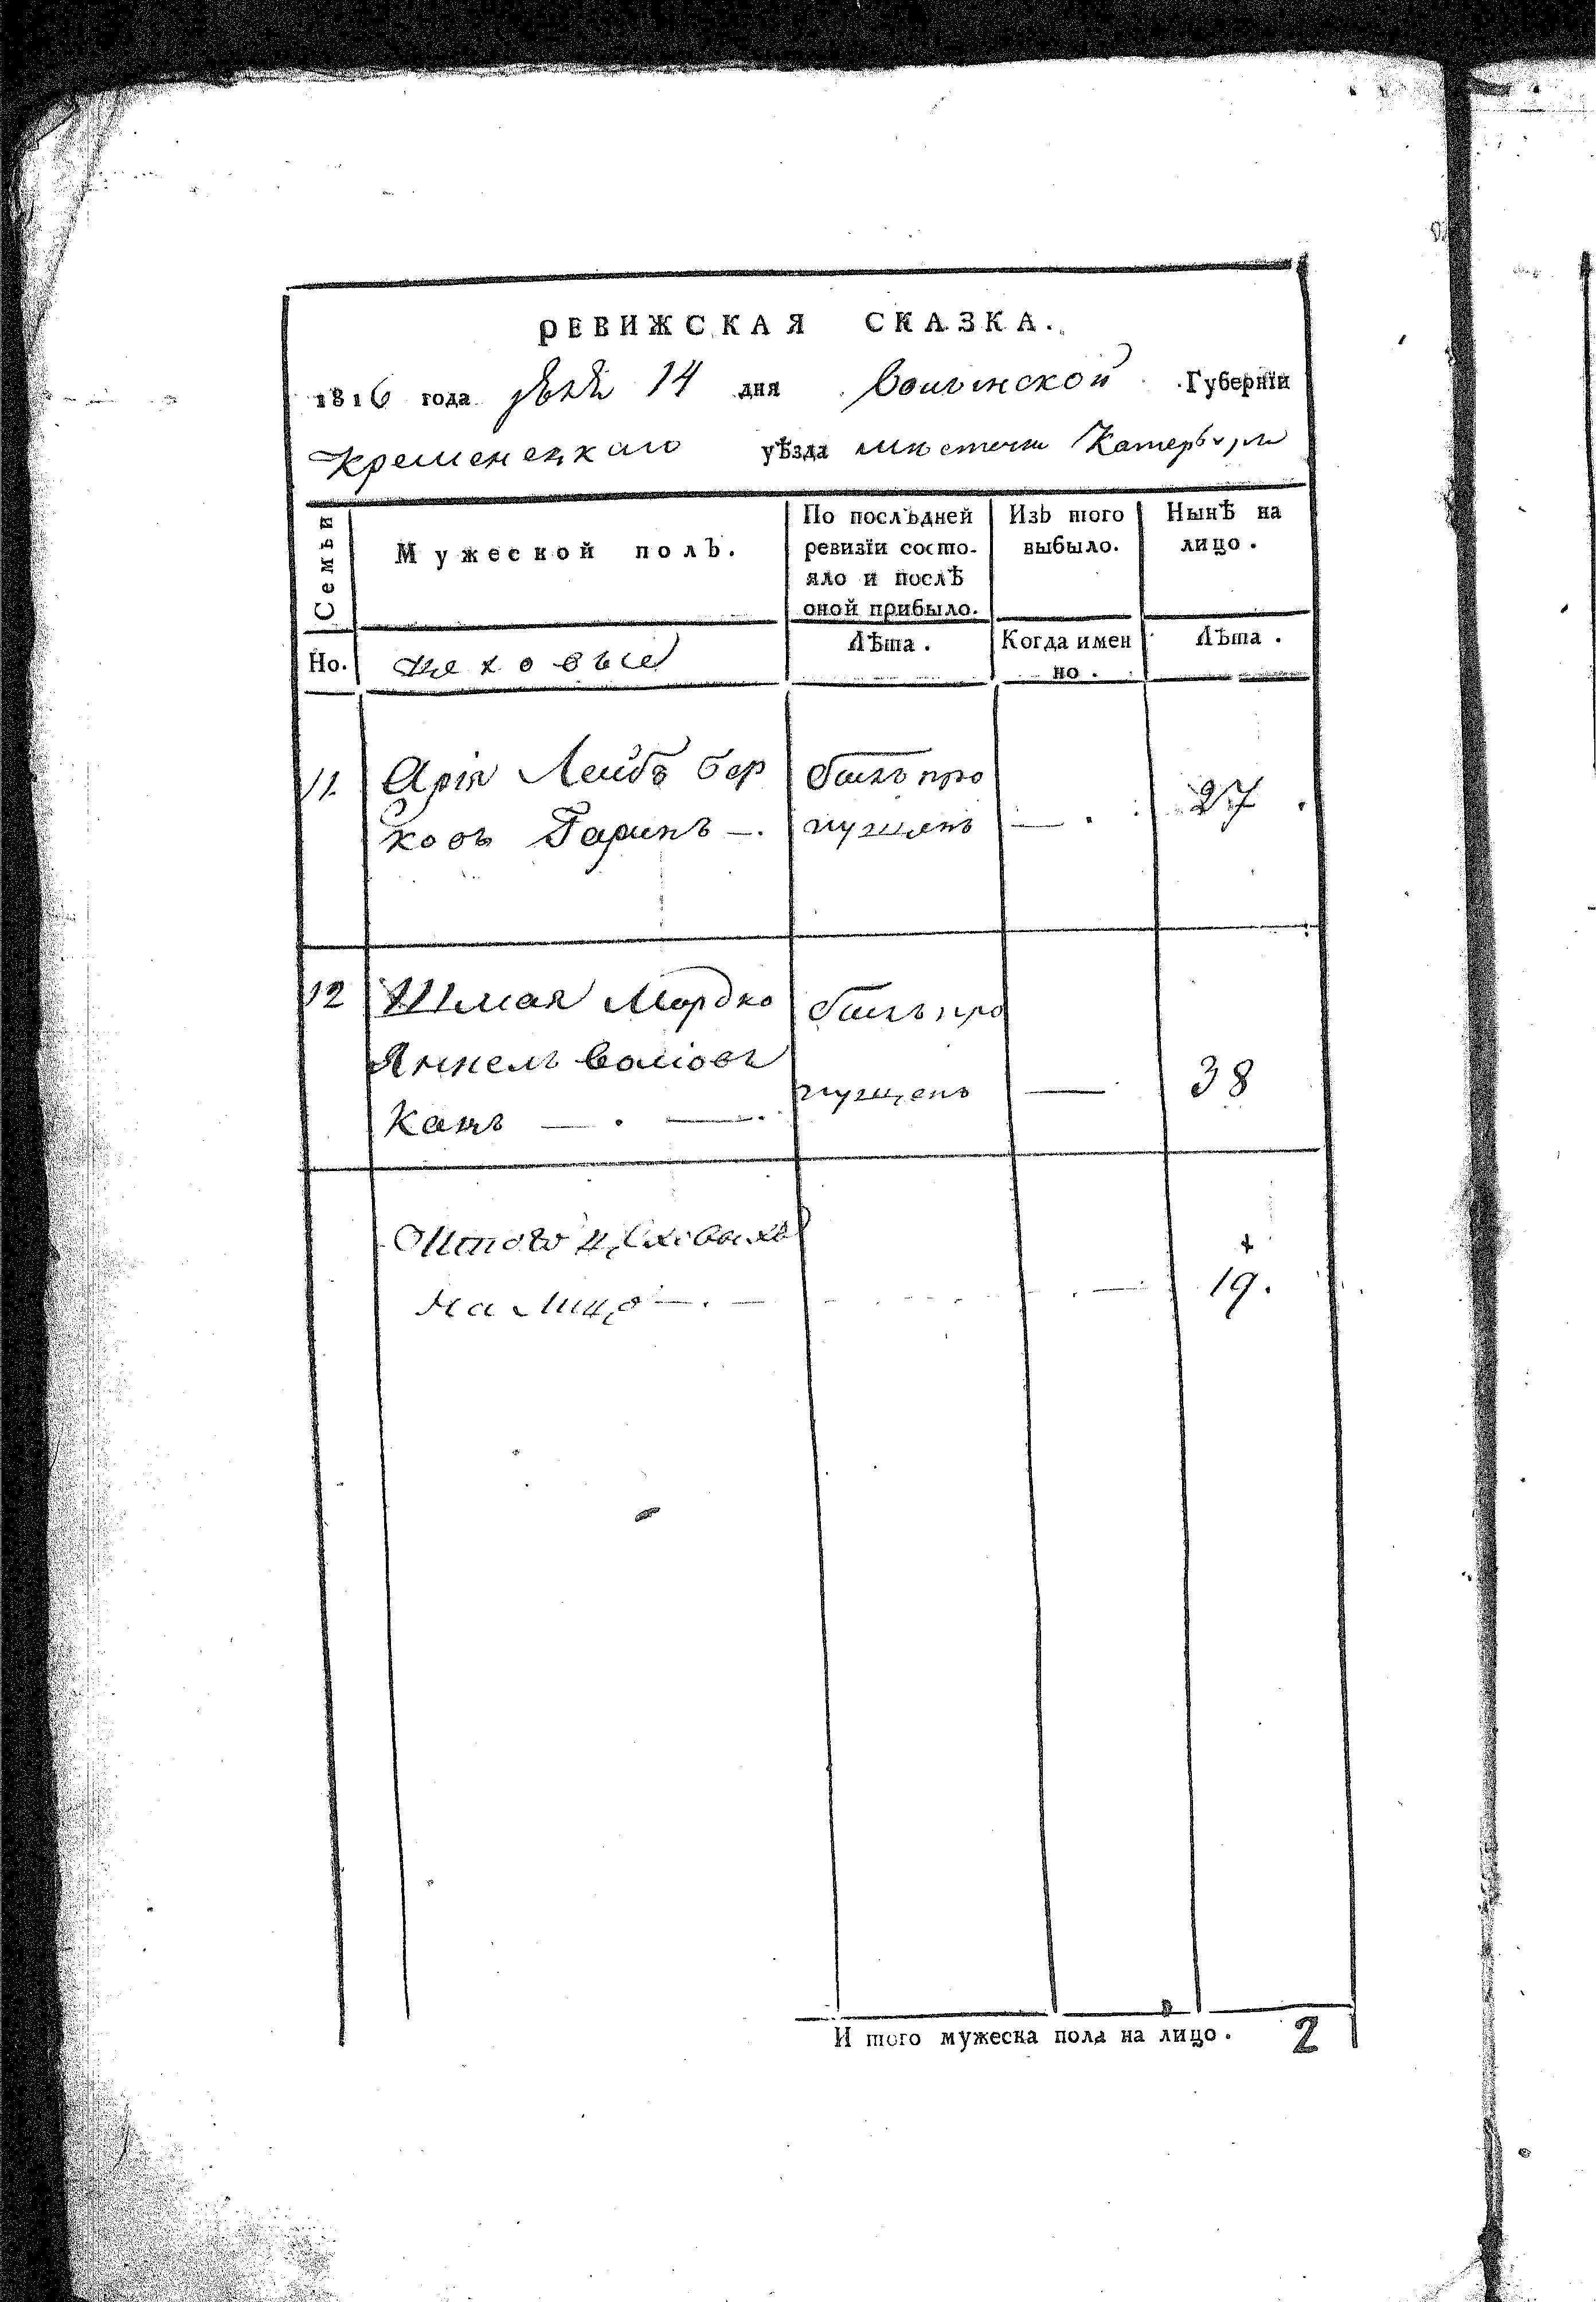 РЕВИЖСКАЯ СКАЗКА.
1816 года 14 дня Волынской Губернїи
Кременецкаго уѣзда местечка Катербурга
Семьи
Мужеской полъ.
По послѣдней ревизїи состо-
яло и послѣ
оной прибыло.
Изъ того
выбыло.
Нынѣ на
лицо.
Но. цеховые
Лѣта.
Когда имен
но.
Лѣта.
11. Арія Лейбъ Бер
ковъ Гаринъ —.
былъ про
пущенъ — . 27.
12 Шмая Мордко
Янкель Волiовъ
Канъ — . — .
былъ про
пущенъ — 38
Итого цеховыхъ
на лицо — . — . — 19.
И того мужеска пола на лицо. 2